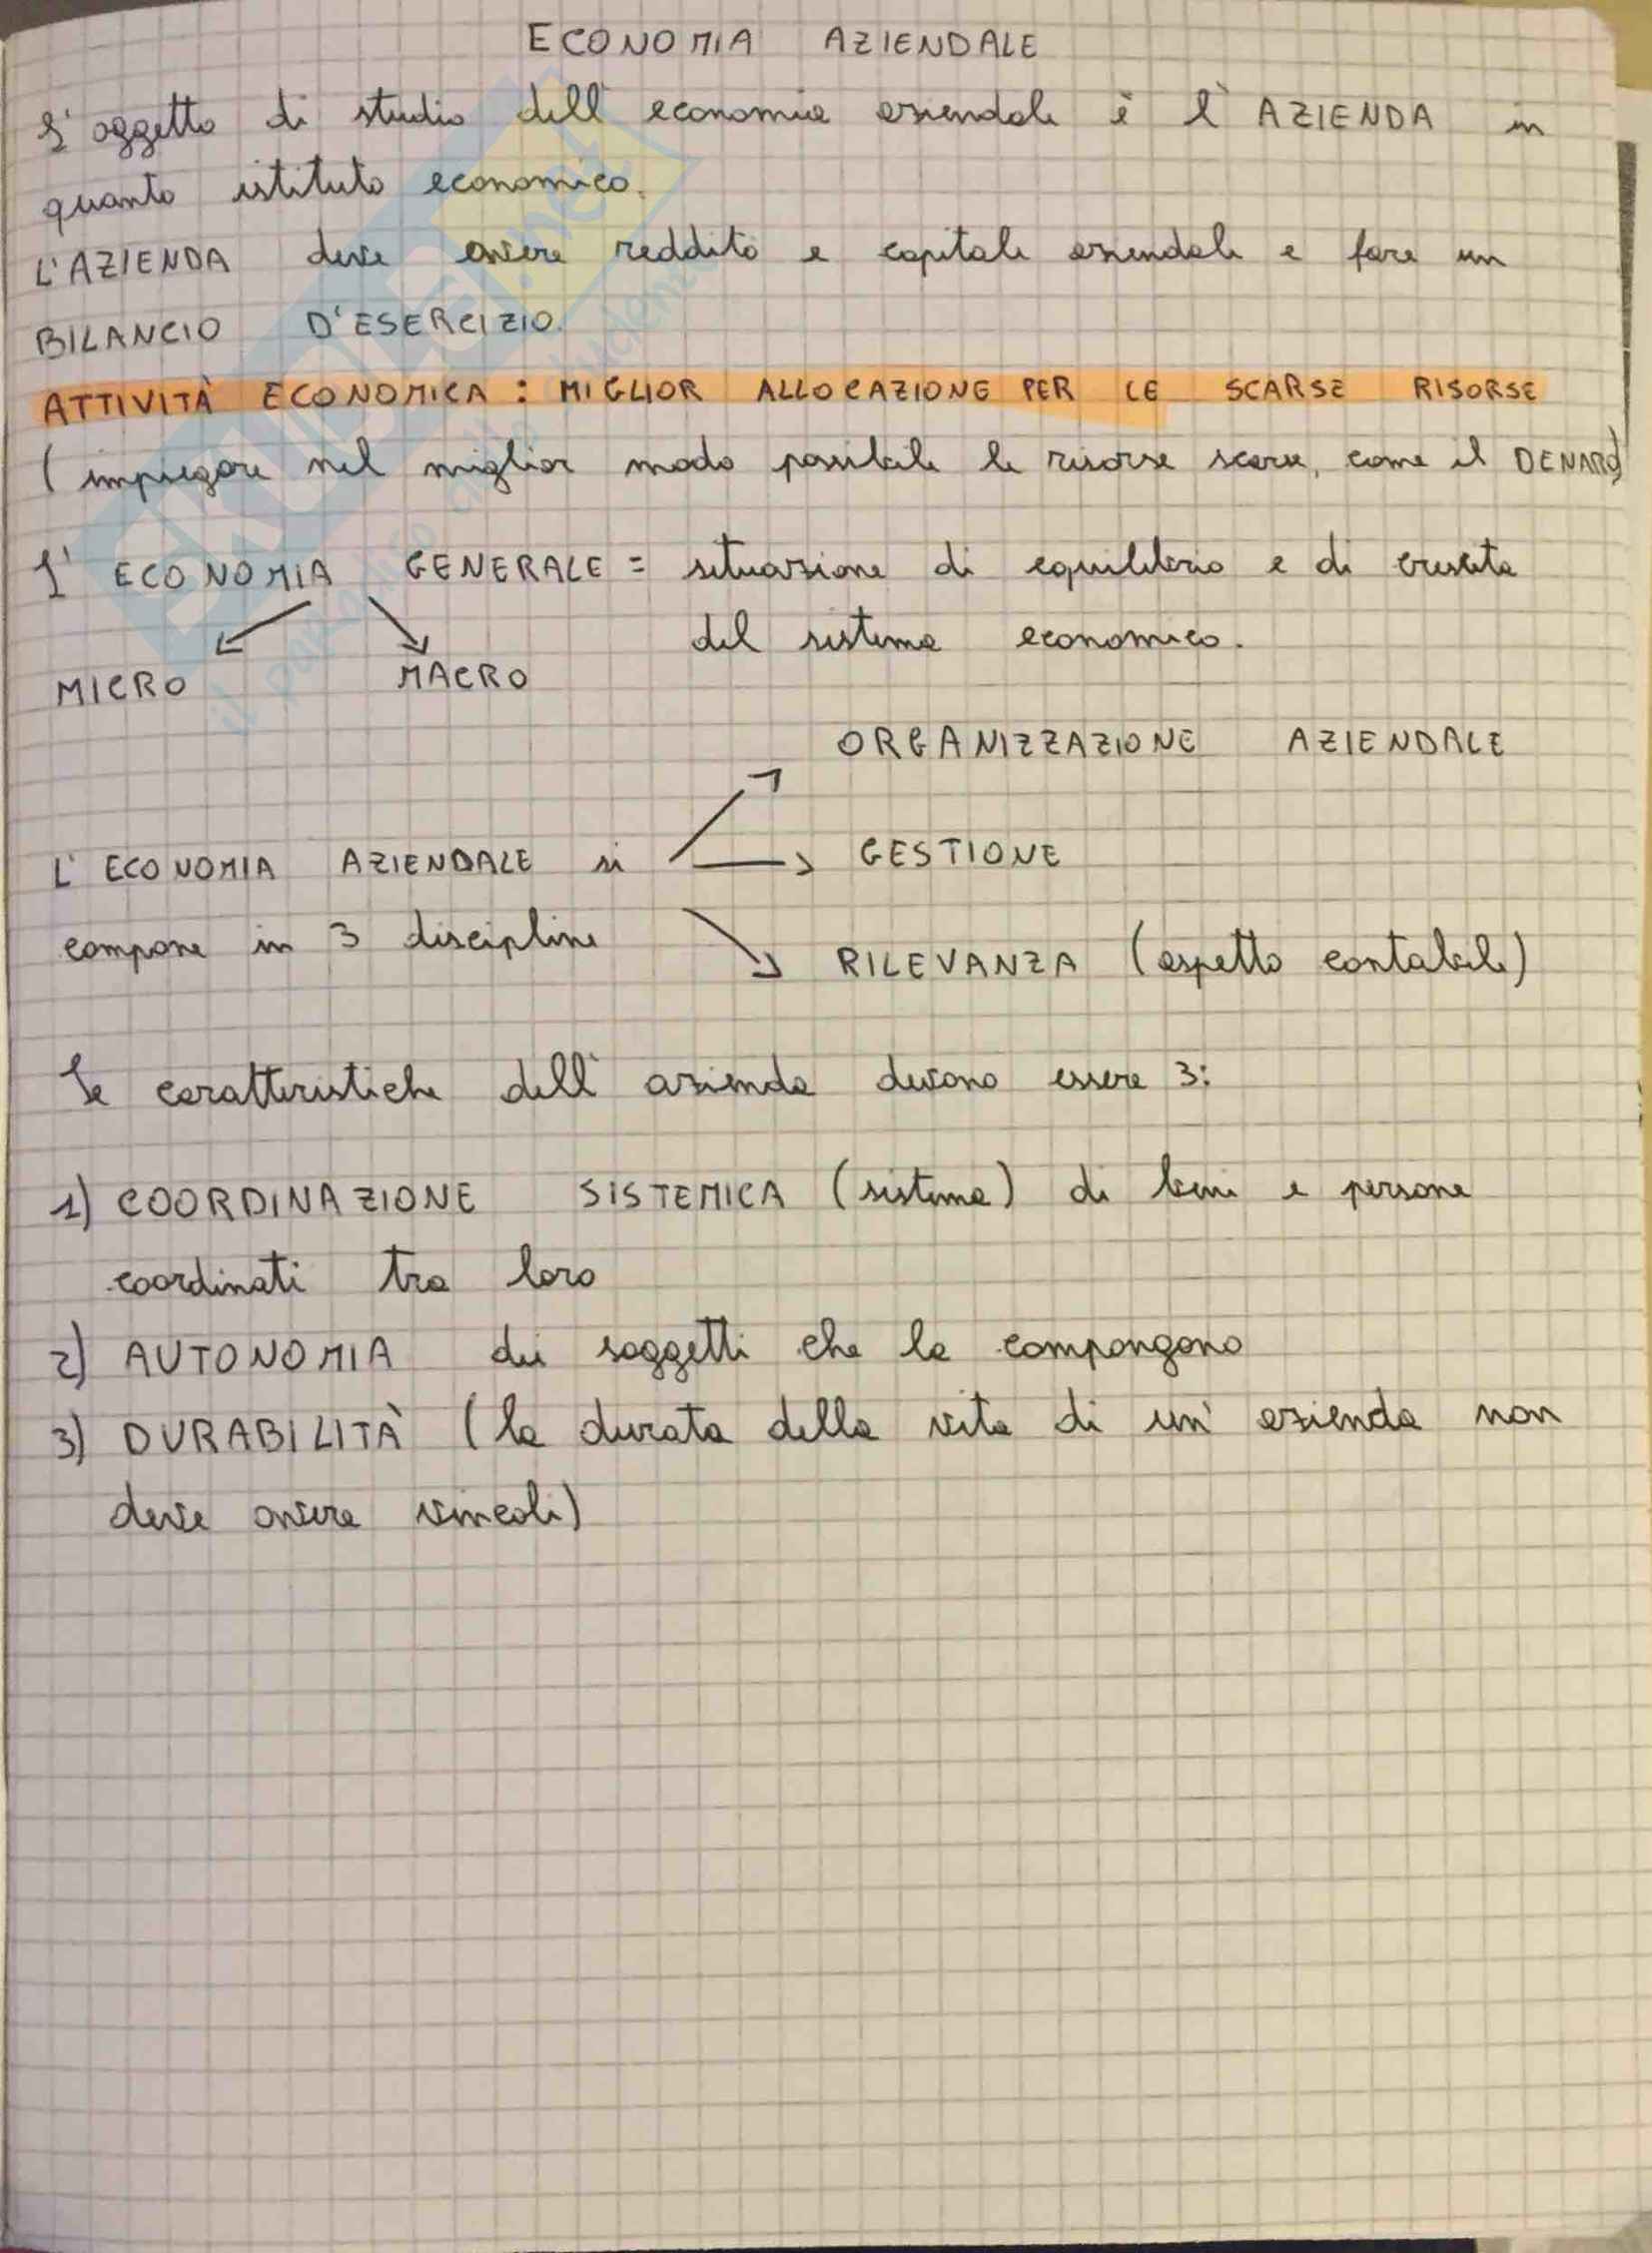 ECONOMIA AZIENDALE
L'oggetto di studio dell'economia aziendale è l'AZIENDA in
quanto istituto economico.
L'AZIENDA deve avere reddito e capitale aziendale e fare un
BILANCIO D'ESERCIZIO.
ATTIVITÀ ECONOMICA: MIGLIOR ALLOCAZIONE PER LE SCARSE RISORSE
(impiegare nel miglior modo possibile le risorse scarse, come il DENARO)
L'ECONOMIA GENERALE = situazione di equilibrio e di crescita
del sistema economico.
MICRO MACRO
ORGANIZZAZIONE AZIENDALE
L'ECONOMIA AZIENDALE si GESTIONE
compone in 3 discipline
RILEVANZA (aspetto contabile)
Le caratteristiche dell'azienda devono essere 3:
1) COORDINAZIONE SISTEMICA (sistema) di beni e persone
coordinati tra loro
2) AUTONOMIA dei soggetti che la compongono
3) DURABILITÀ (la durata della vita di un'azienda non
deve avere vincoli)
SKUOLA.net